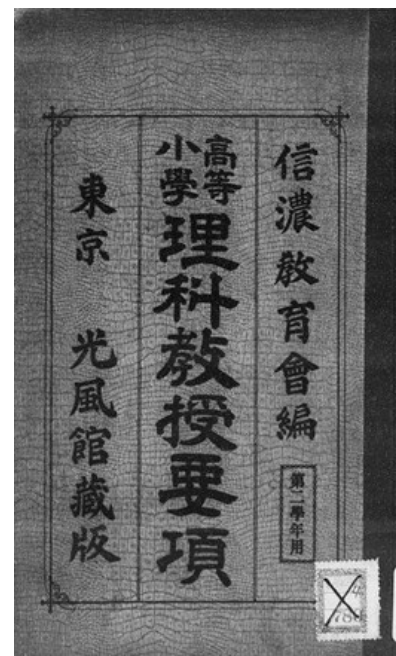 信濃教育會編
第二學年用
高等
小學
理科教授要項
東京 光風館藏版